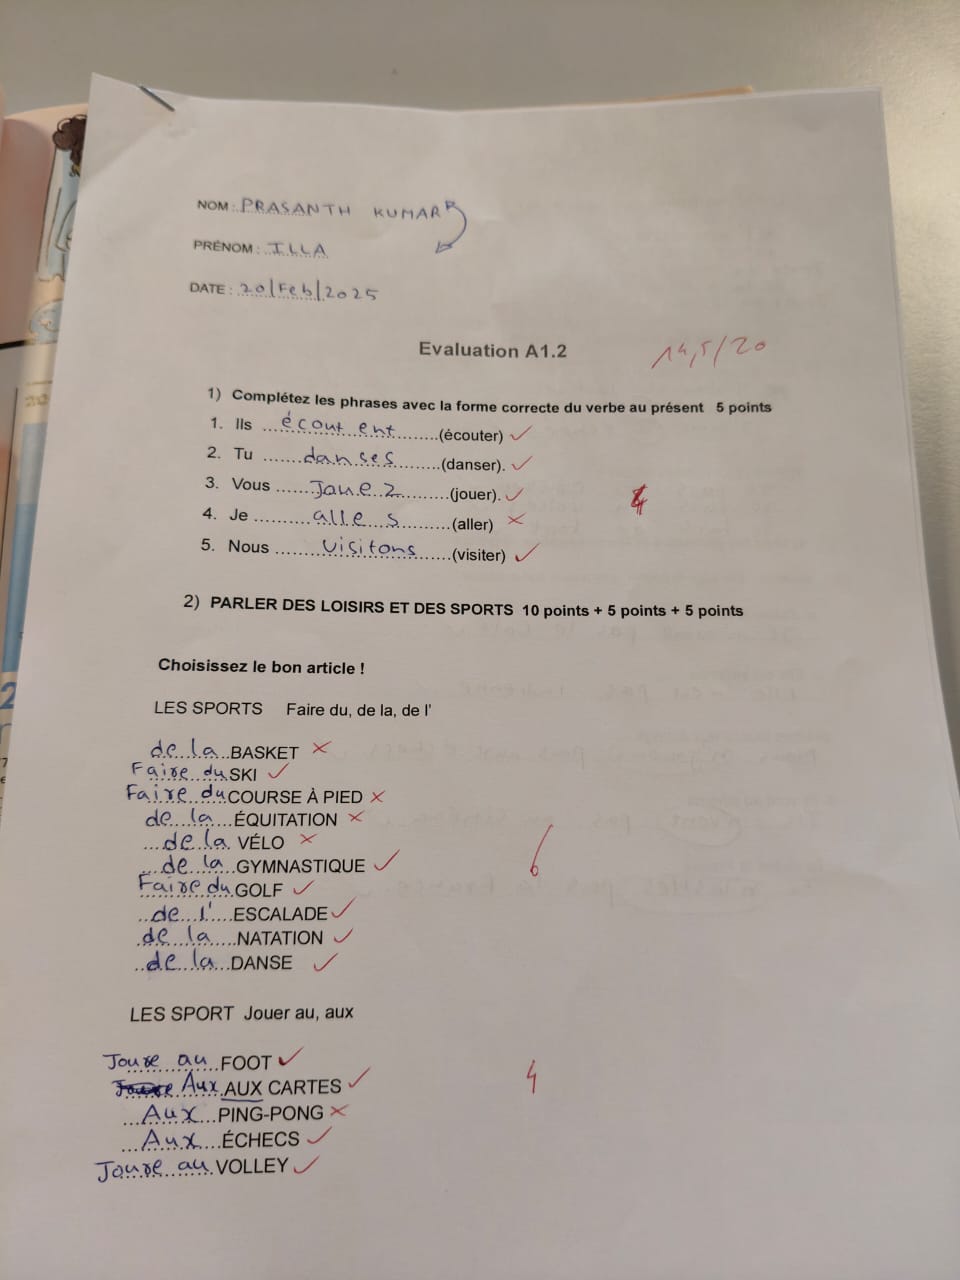 NOM : PRASANTH KUMAR
PRÉNOM : ILLA
DATE : 20/Feb/2025
Evaluation A1.2
14,5/20
1) Complétez les phrases avec la forme correcte du verbe au présent 5 points
1. Ils ...écoutent...(écouter)
2. Tu ...danses...(danser).
3. Vous ...Jouez...(jouer).
4. Je ...alles...(aller)
5. Nous ...visitons...(visiter)
4
2) PARLER DES LOISIRS ET DES SPORTS 10 points + 5 points + 5 points
Choisissez le bon article !
LES SPORTS Faire du, de la, de l'
de la BASKET
Faire du SKI
Faire du COURSE À PIED
de la ÉQUITATION
de la VÉLO
de la GYMNASTIQUE
Faire du GOLF
de l' ESCALADE
de la NATATION
de la DANSE
6
LES SPORT Jouer au, aux
Joure au FOOT
Aux AUX CARTES
Aux PING-PONG
Aux ÉCHECS
Joure au VOLLEY
4